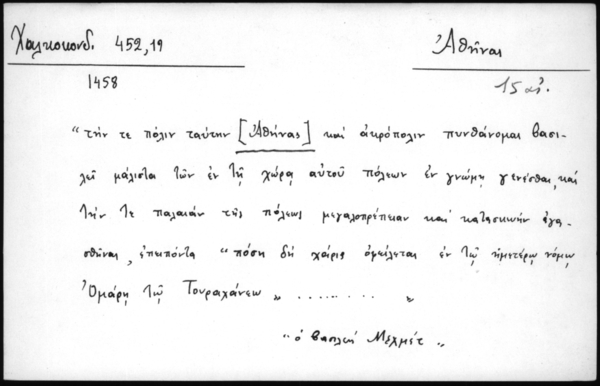 Χαλκοκονδ. 452,19
Ἀθῆναι
1458
15 αἰ.
"τήν τε πόλιν ταύτην [Ἀθήνας] καὶ ἀκρόπολιν πυνθάνομαι βασι-
λεῖ μάλιστα τῶν ἐν τῇ χώρᾳ αὐτοῦ πόλεων ἐν γνώμῃ γενέσθαι, καὶ
τήν τε παλαιάν τῆς πόλεως μεγαλοπρέπειαν καὶ κατασκευήν ἀγα-
σθῆναι, ἐπειπόντα "πόση δή χάρις ὀφείλεται ἐν τῷ ἡμετέρῳ νόμῳ
Ὀμάρῃ τῷ Τουραχάνεω" ........ "
"ὁ βασιλεύς Μεχμέτ"